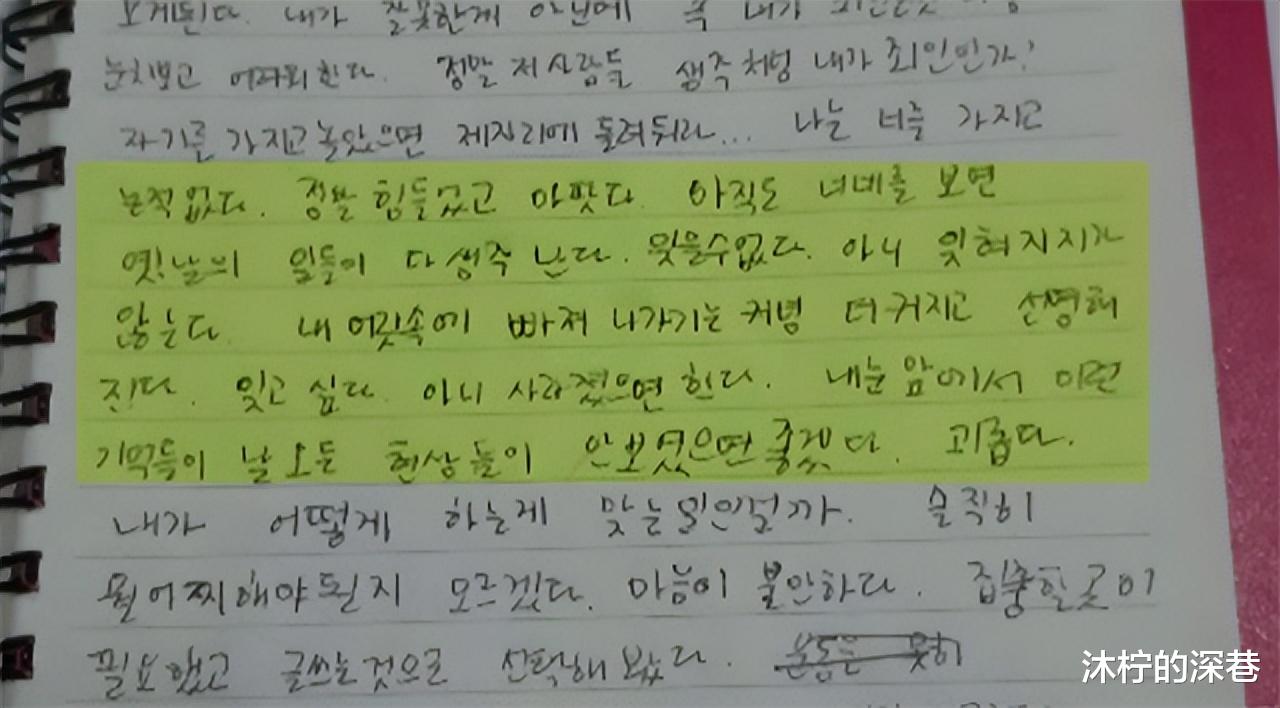 모게된다. 내가 잘못한게 아닌데 꼭 내가
눈치보고 어려워한다. 정말 저사람들 생각처럼 내가 죄인인가?
자기를 가지고놀았으면 제자리에 돌려둬라... 나는 너를 가지고
논적없다. 정말 힘들었고 아팟다. 아직도 너네를 보면
옛날의 일들이 다생각난다. 잊을수없다. 아니 잊혀지지가
않는다. 내 머릿속에 빠져 나가기는 커녕 더커지고 선명해
진다. 잊고 싶다. 아니 사라졌으면 한다. 내눈앞에서 이런
기억들이 날 오는 현상들이 안보였으면 좋겠다. 괴롭다.
내가 어떻게 하는게 맞는일인걸까. 솔직히
뭘어찌해야될지 모르겠다. 마음이 불안하다. 집중할곳이
필요했고 글쓰는것으로 선택해봤다.
沐柠的深巷